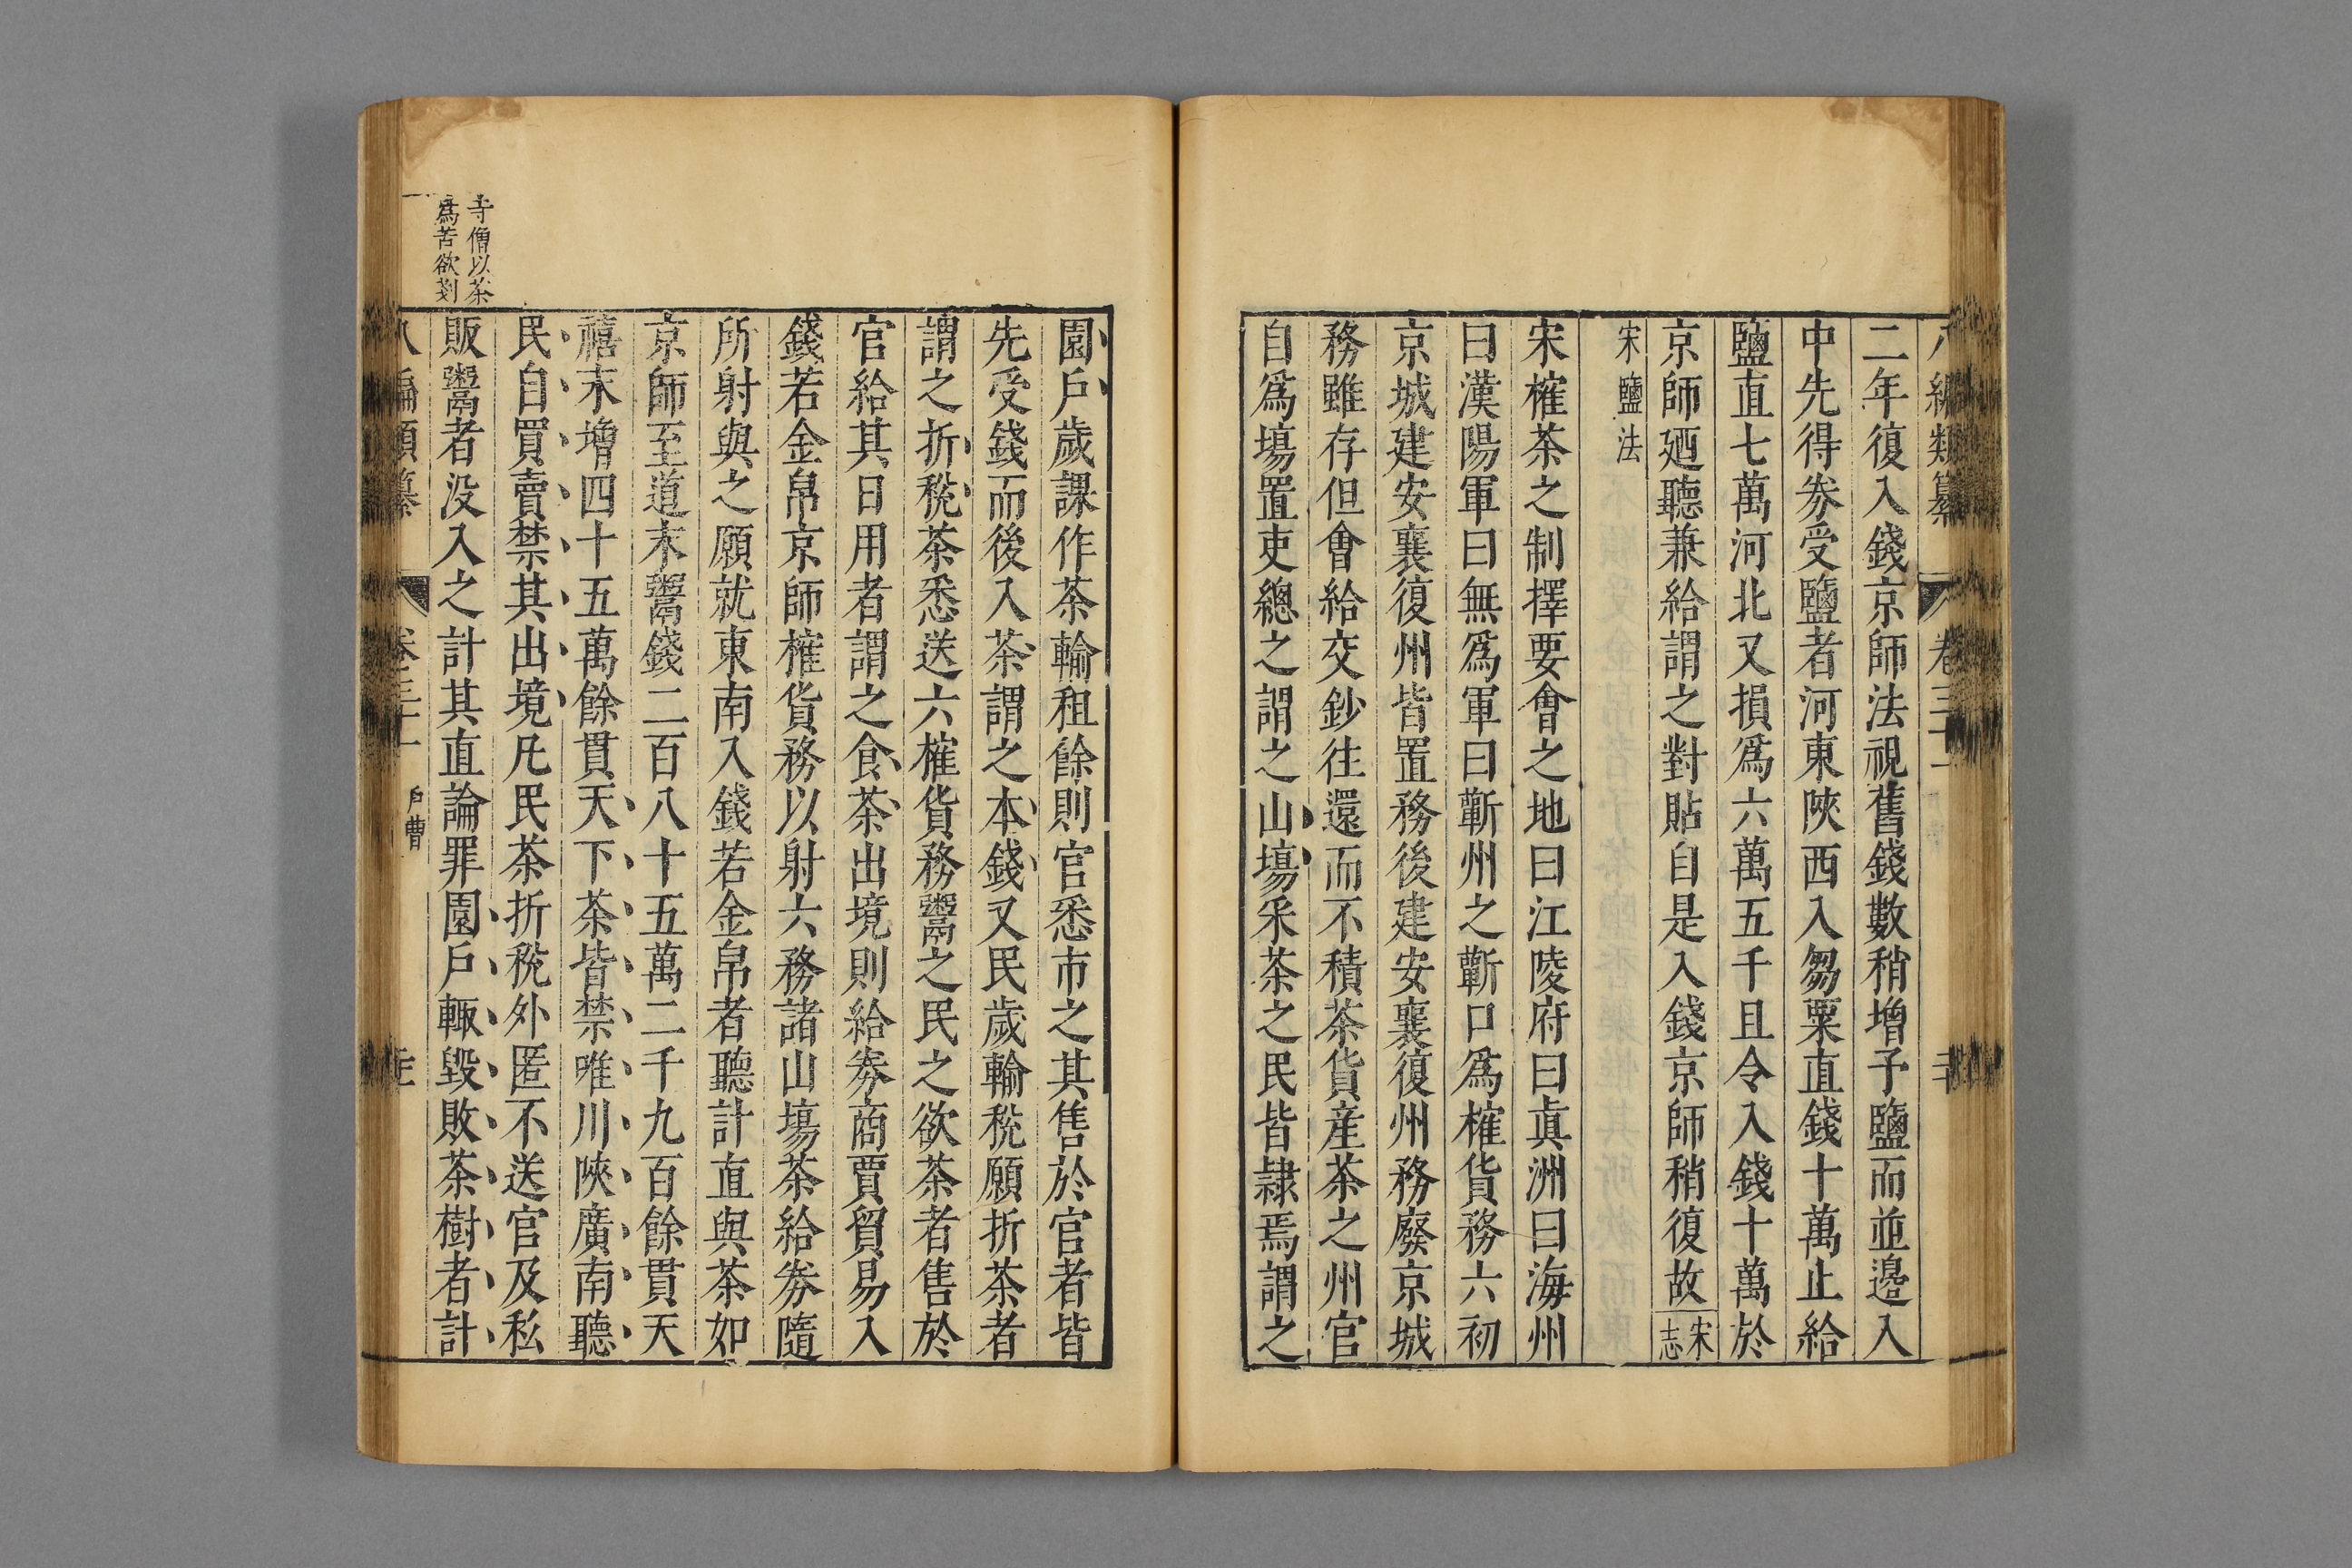 二年復入錢京師法視舊錢數稍增予鹽而並邊入
中先得劵受鹽者河東陜西入芻粟直錢十萬止給
鹽直七萬河北又損爲六萬五千且令入錢十萬於
京師廼聽兼給謂之對貼自是入錢京師稍復故宋志
宋鹽法
宋榷茶之制擇要會之地曰江陵府曰眞洲曰海州
曰漢陽軍曰無爲軍曰蘄州之蘄口爲榷貨務六初
京城建安襄復州皆置務後建安襄復州務廢京城
務雖存但會給交鈔往還而不積茶貨産茶之州官
自爲塲置吏總之謂之山塲采茶之民皆隷焉謂之
園戶歲課作茶輸租餘則官悉市之其售於官者皆
先受錢而後入茶謂之本錢又民歲輸稅願折茶者
謂之折稅茶悉送六榷貨務鬻之民之欲茶者售於
官給其日用者謂之食茶出境則給劵商賈貿易入
錢若金帛京師榷貨務以射六務諸山塲茶給劵隨
所射與之願就東南入錢若金帛者聽計直與茶如
京師至道末鬻錢二百八十五萬二千九百餘貫天
禧末增四十五萬餘貫天下茶皆禁唯川陜廣南聽
民自買賣禁其出境凡民茶折稅外匿不送官及私
販鬻者没入之計其直論罪園戶輙毀敗茶樹者計
寺僧以茶
爲苦欲剗
戶曹